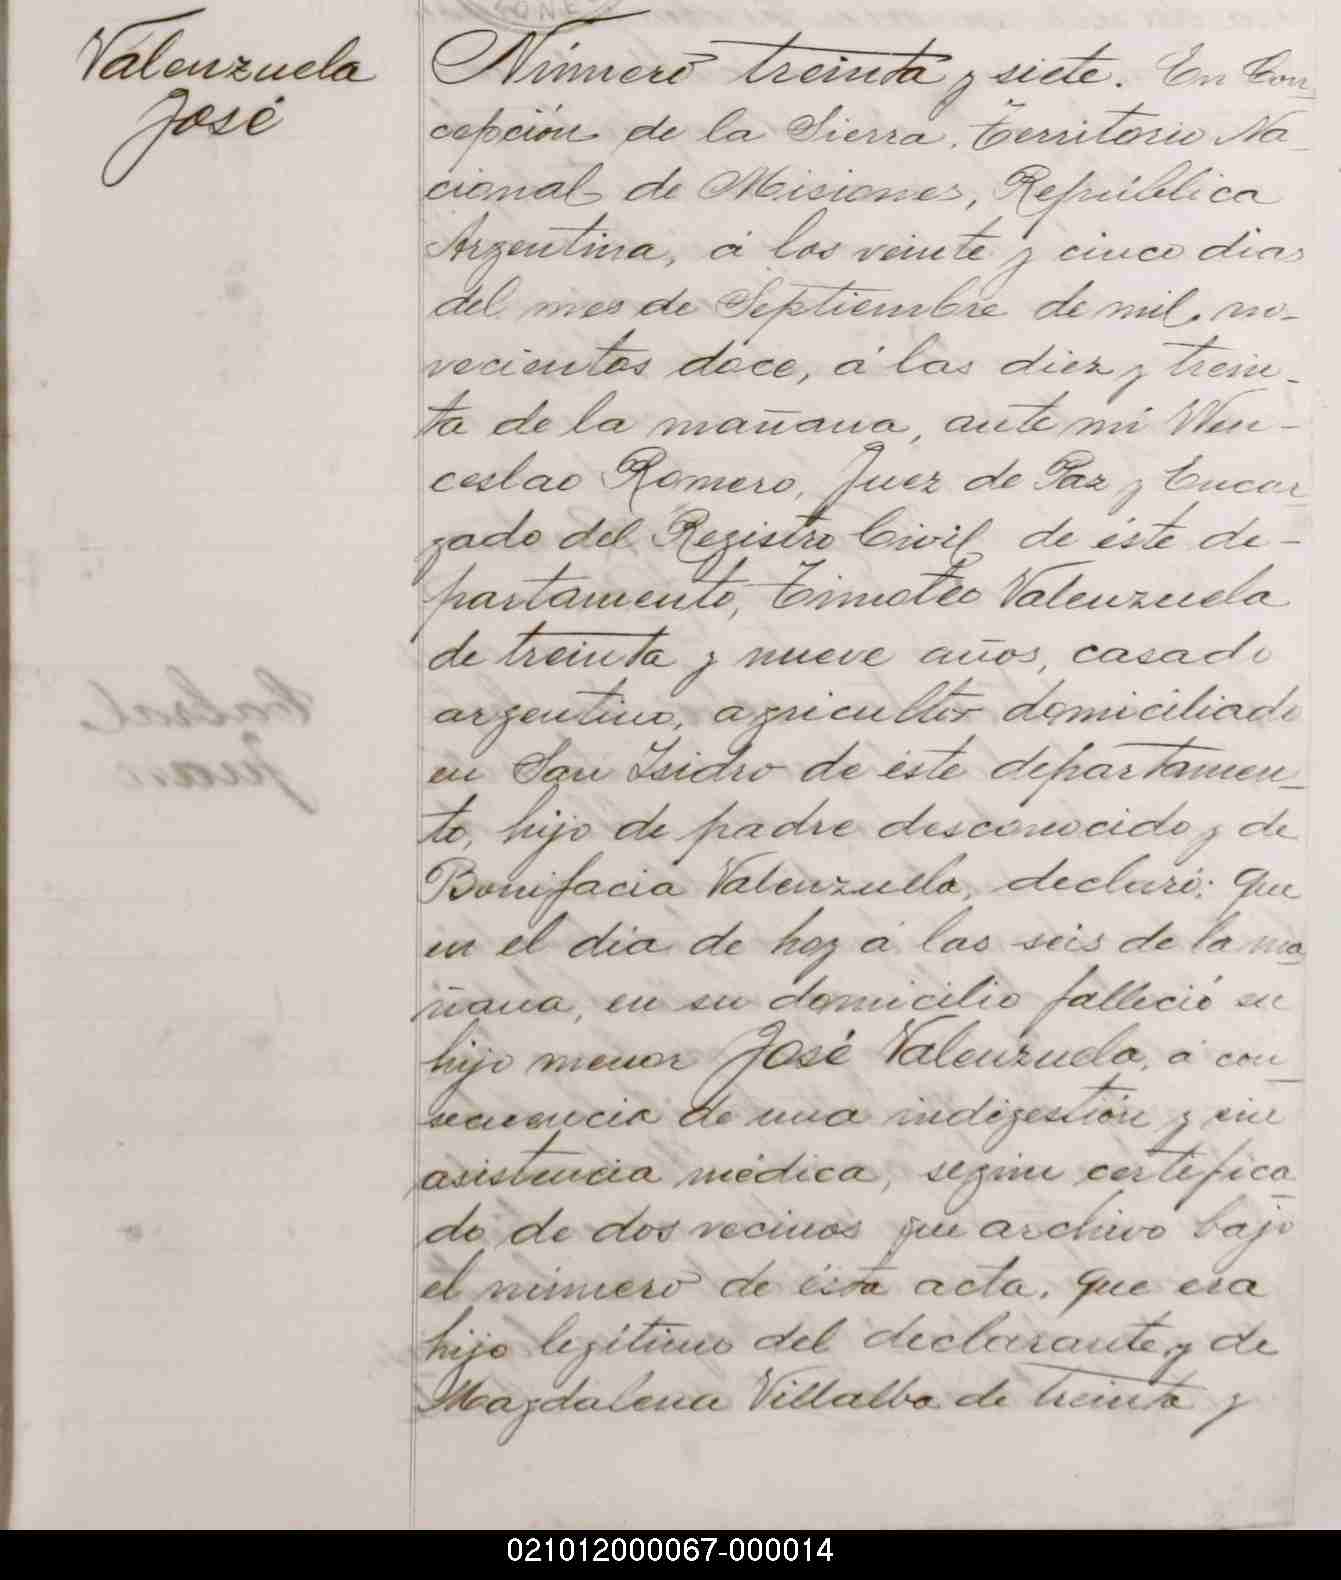 Valenzuela
José
Número treinta y siete. En Con_
cepción de la Sierra, Territorio Na_
cional de Misiones, República
Argentina, á los veinte y cinco dias
del mes de Septiembre de mil no-
vecientos doce, á las diez y trein_
ta de la mañana, ante mi Wen-
ceslao Romero, Juez de Paz y Encar
gado del Registro Civil de éste de-
partamento, Timoteo Valenzuela
de treinta y nueve años, casado
argentino, agricultor domiciliado
en San Isidro de éste departamen_
to, hijo de padre desconocido y de
Bonifacia Valenzuela, declaró: Que
en el dia de hoy á las seis de la ma_
ñana, en su domicilio falleció su
hijo menor José Valenzuela, á con_
secuencia de una indigestión y sin
asistencia médica, según certifica_
do de dos vecinos que archivo bajo
el número de ésta acta. Que era
hijo legítimo del declarante y de
Magdalena Villalba de treinta y
021012000067-000014